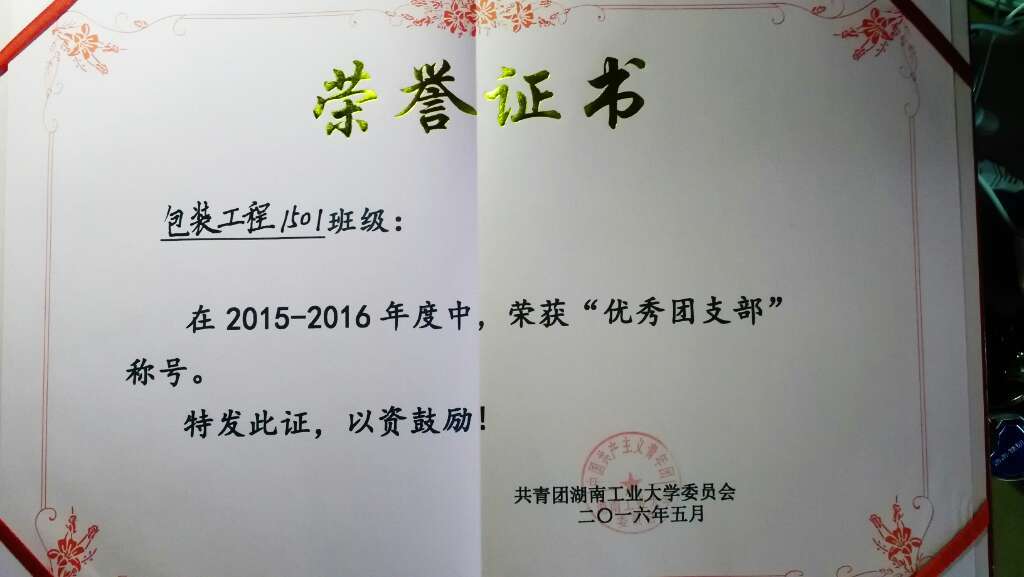 荣誉证书
包装工程1501班级：
在2015-2016年度中，荣获“优秀团支部”
称号。
特发此证，以资鼓励！
共青团湖南工业大学委员会
二〇一六年五月